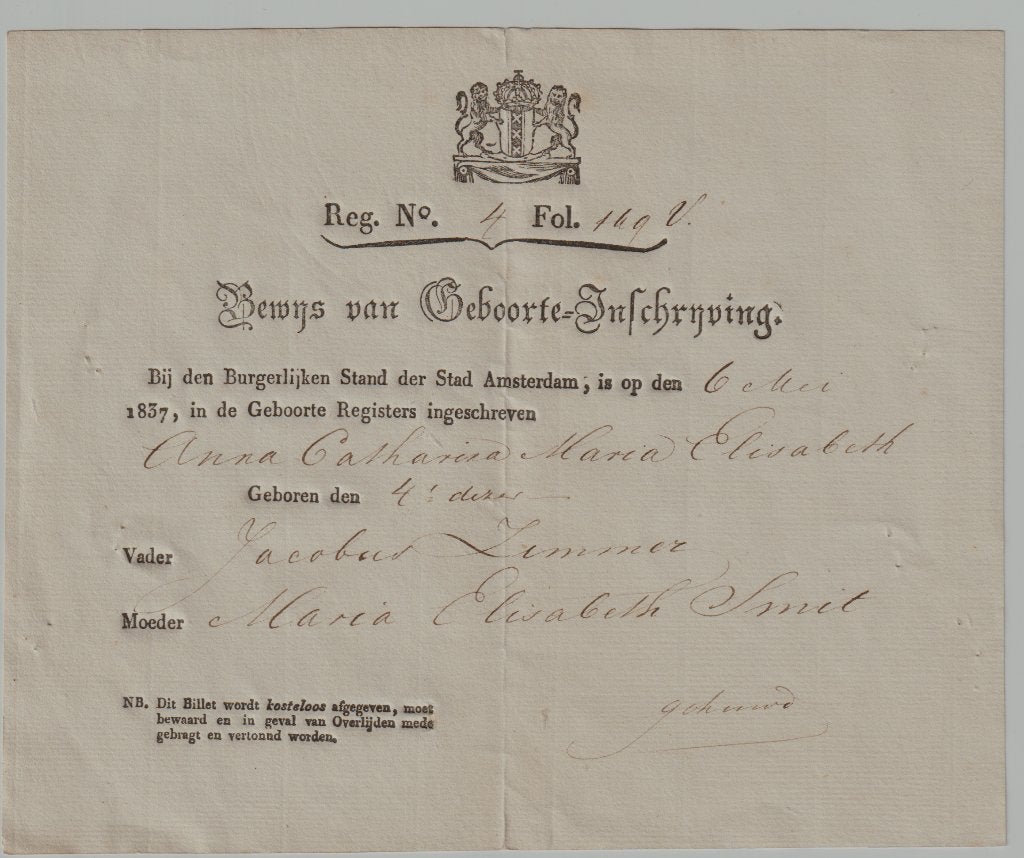 Reg. No. 4 Fol. 149 V.
Bewijs van Geboorte-Inschrijving.
Bij den Burgerlijken Stand der Stad Amsterdam, is op den 6 Mei
1837, in de Geboorte Registers ingeschreven
Anna Catharina Maria Elisabeth
Geboren den 4r dezer
Vader Jacobus Zimmer
Moeder Maria Elisabeth Smit
NB. Dit Billet wordt kosteloos afgegeven, moet
bewaard en in geval van Overlijden mede
gebragt en vertoond worden.
gehuwd